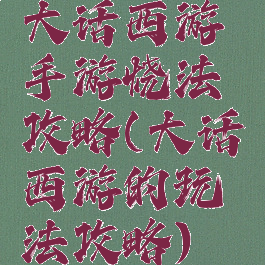 大话西游
手游烧法
攻略(大话
西游的玩
法攻略)